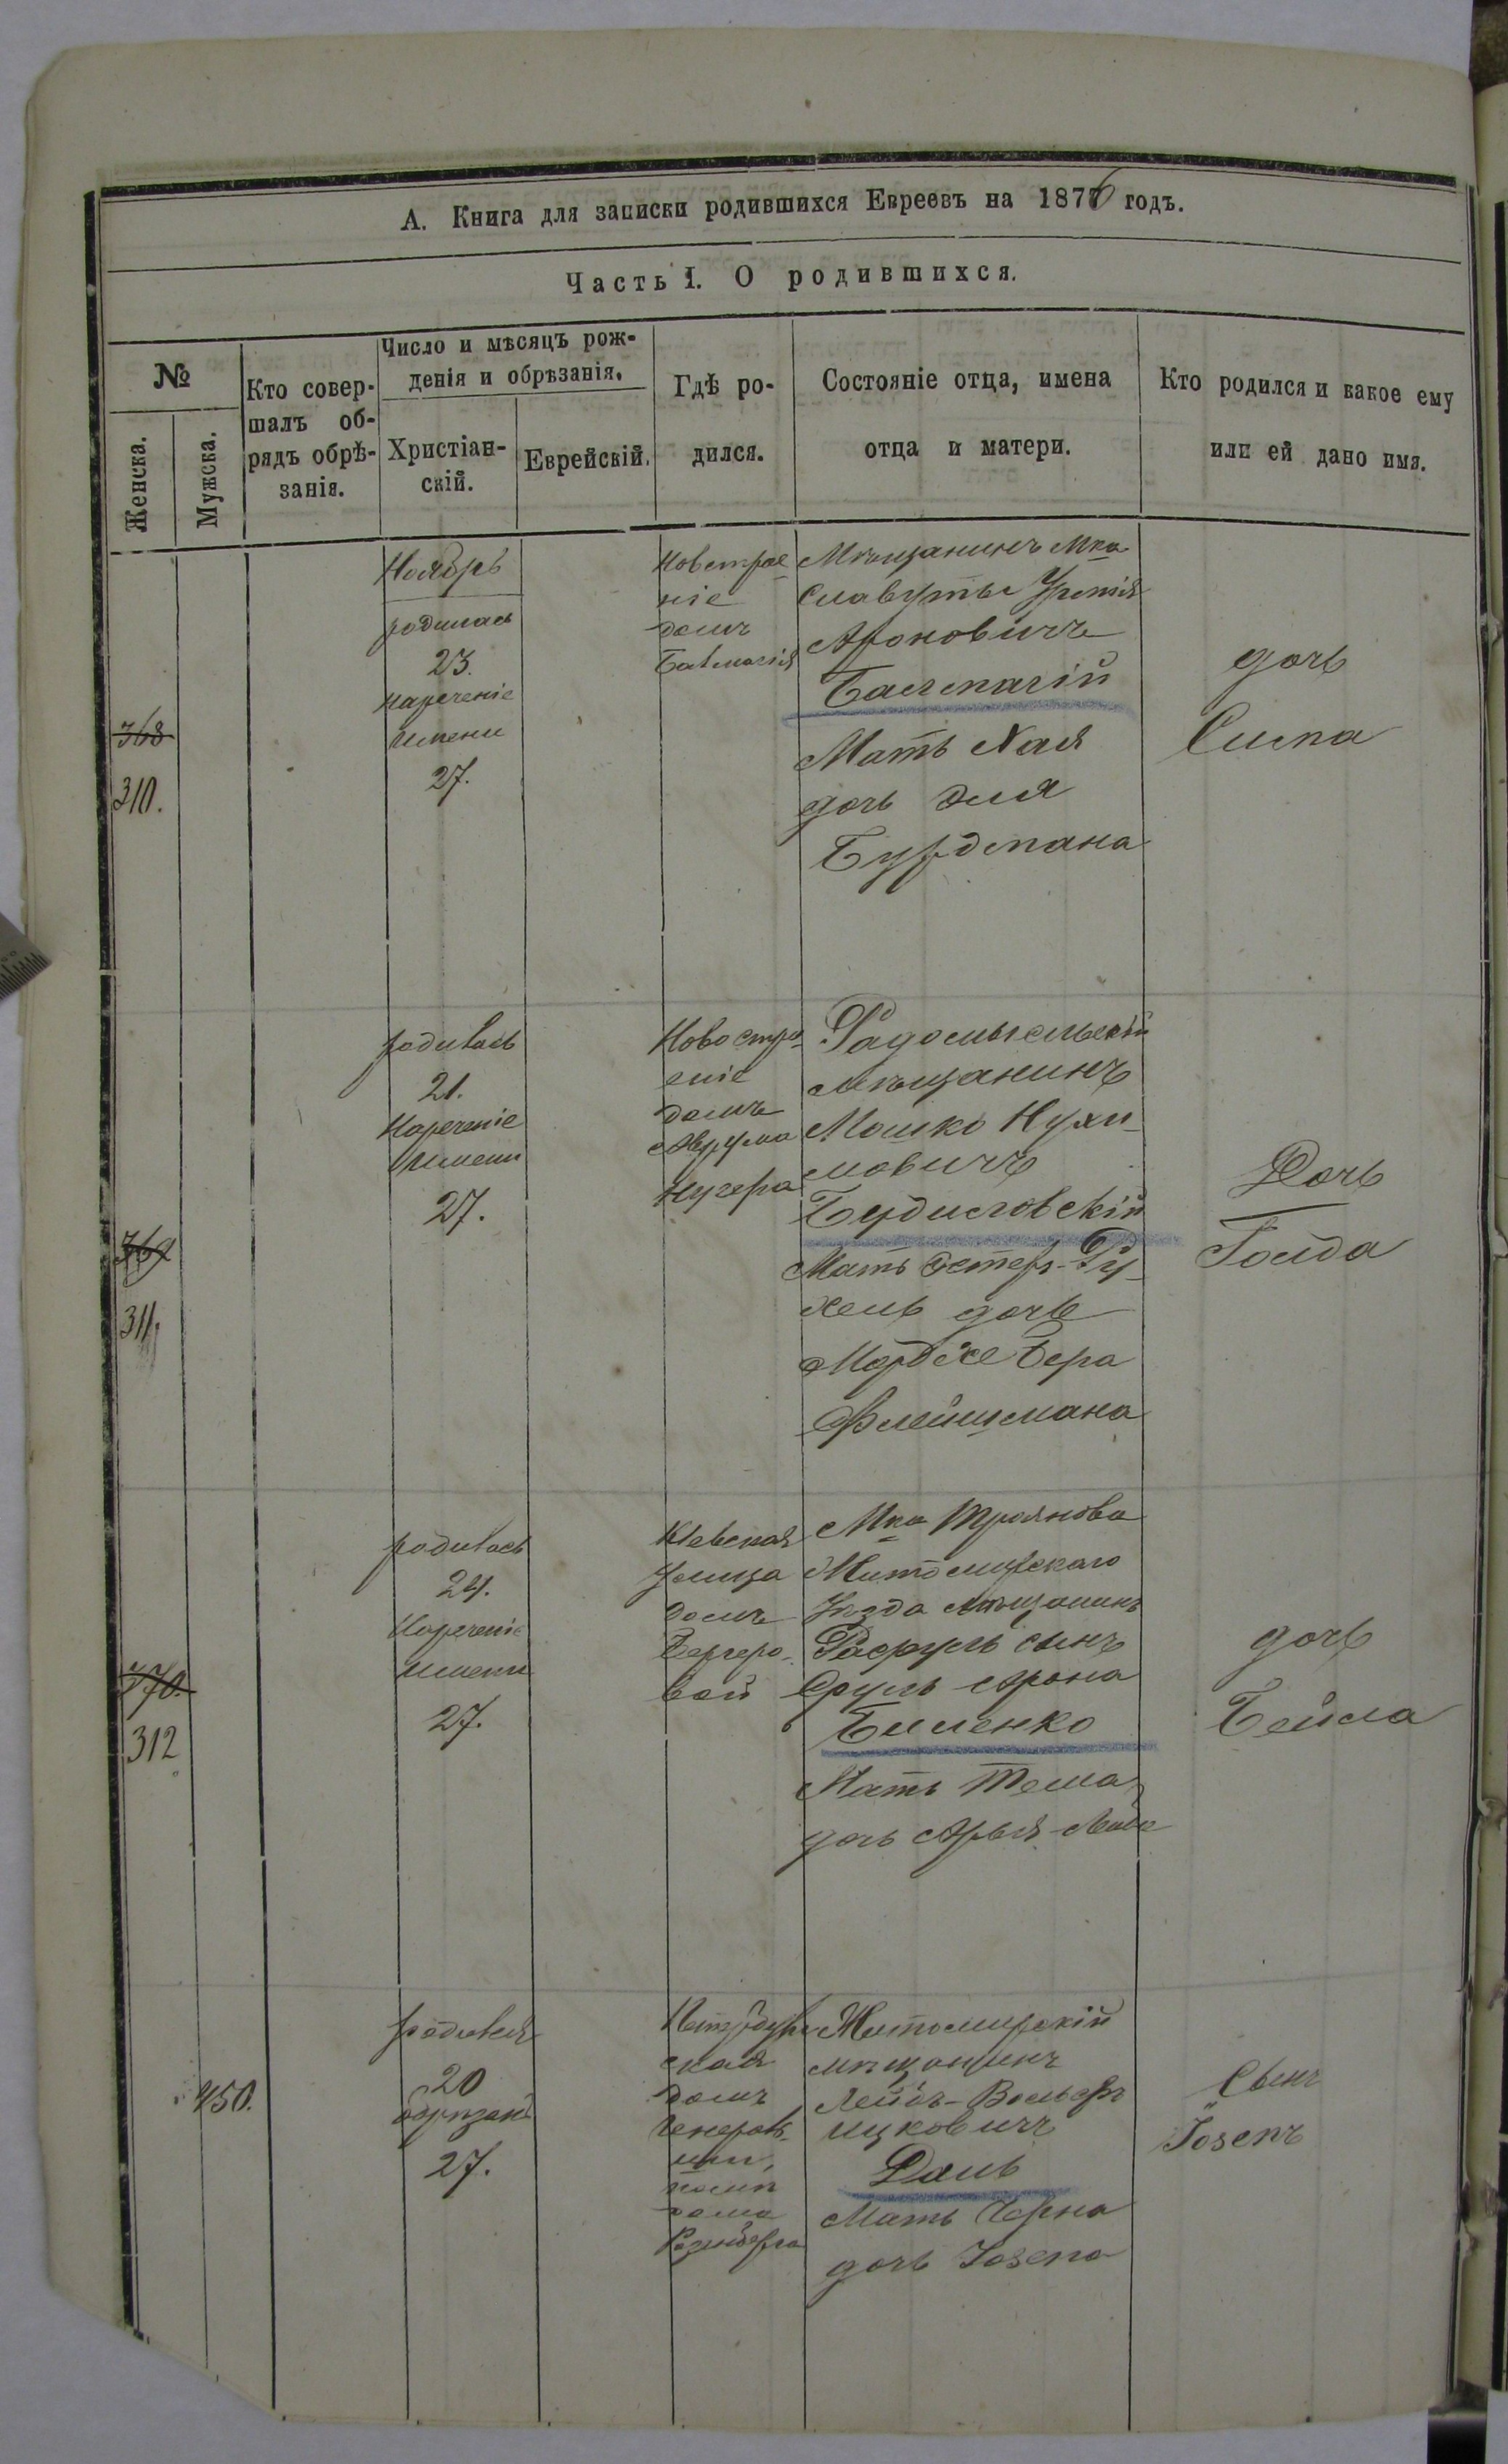 А. Книга для записки родившихся Евреевъ на 1876 годъ.
Часть I. О родившихся.
№
Женска.
Мужска.
Кто совер-
шалъ об-
рядъ обрѣ-
занія.
Число и мѣсяцъ рож-
денія и обрѣзанія.
Христіан-
скій.
Еврейскій.
Гдѣ ро-
дился.
Состояніе отца, имена
отца и матери.
Кто родился и какое ему
или ей дано имя.
368
310.
Ноябрь
родилась
23.
нареченіе
имени
27.
Новстрое
ніе
домъ
Мѣщанинъ мка
Славуты
Ароновичъ
Мать Хая
дочь Эля
Бурдмана
дочь
Сима
369
311.
родилась
21.
Нареченіе
имени
27.
Новостро
еніе
домъ
Аврума
Радомысльскій
мѣщанинъ
Мошко Нухи-
мовичъ
Будиловскій
Мать Эстеръ-Ру-
хель дочь
Мордхе Бера
Флейшмана
Дочь
Голда
370.
312
родилась
24.
Нареченіе
имени
27.
Кіевская
улица
домъ
Бергеро-
вой
Мка Троянова
Житомирскаго
Уѣзда мѣщанинъ
сынъ
Сруль Арона
Биленко
Мать Тема
дочь Арья-Лейб
дочь
Бейла
450.
родился
20
обрѣзанъ
27.
ская
домъ
дома
Розенберга
Житомирскій
мѣщанинъ
Лейбъ-Вольфъ
Ицковичъ
Даль
Мать Черна
дочь Іозепа
Сынъ
Іозепъ